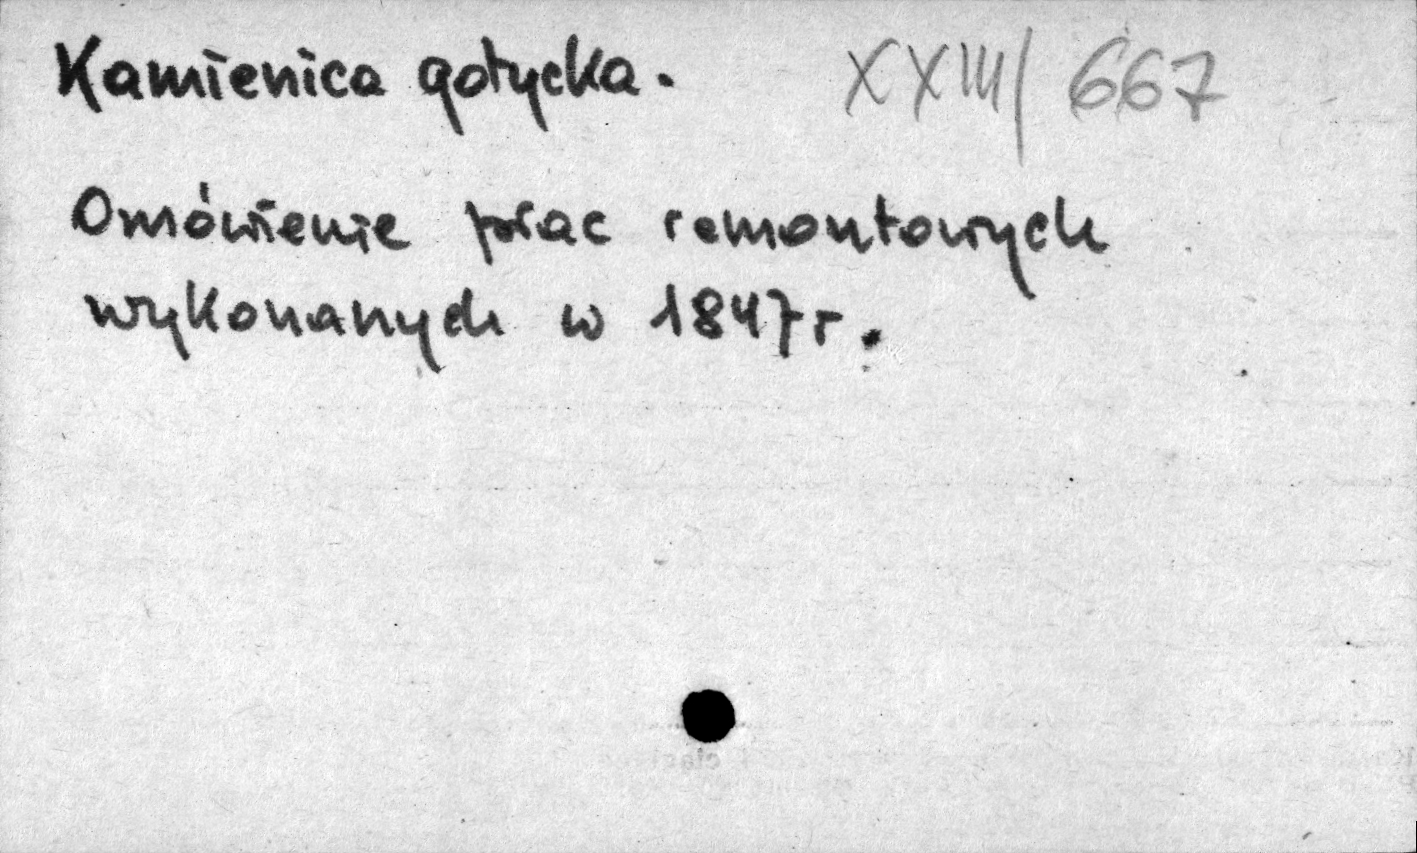 Kamienica gotycka. XXIII/667
Omówienie prac remontowych
wykonanych w 1847r.